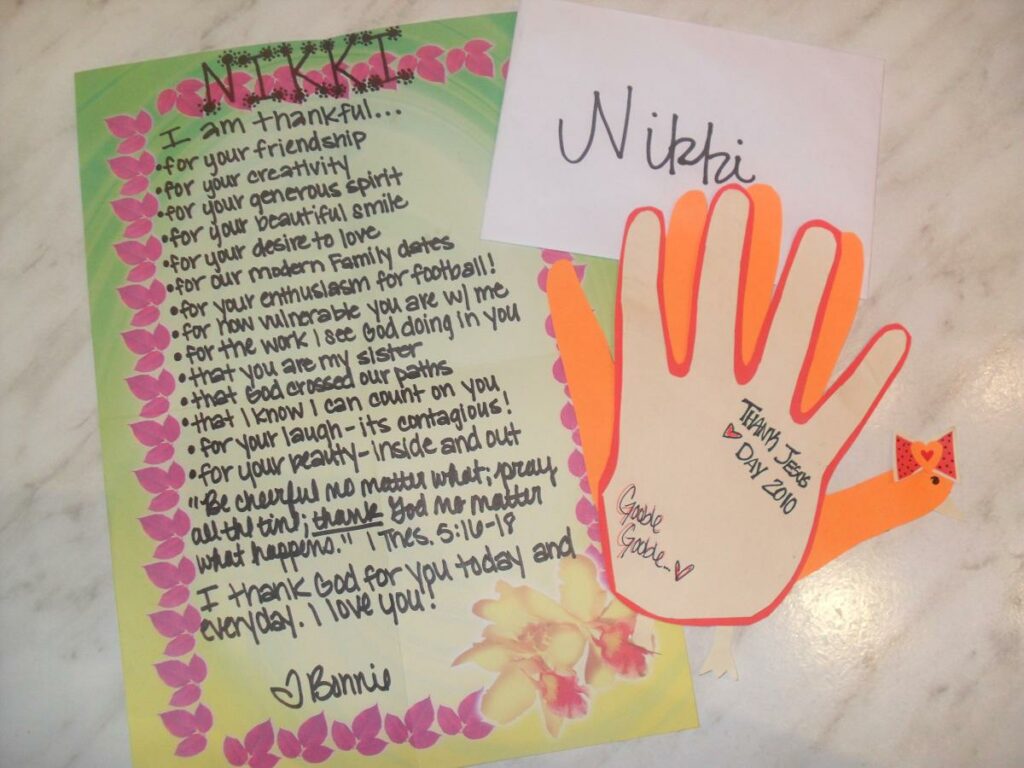 NIKKI
I am thankful...
•for your friendship
•for your creativity
•for your generous spirit
•for your beautiful smile
•for your desire to love
•for our modern Family dates
•for your enthusiasm for football!
•for how vulnerable you are w/ me
•for the work I see God doing in you
•that you are my sister
•that God crossed our paths
•that I know I can count on you
•for your laugh - its contagious!
•for your beauty - inside and out
"Be cheerful no matter what; pray
all the time; thank God no matter
what happens." 1 Thes. 5:16-18
I thank God for you today and
everyday. I love you!
♡ Bonnie
Nikki
THANK JESUS
DAY 2010
Gobble
Gobble...♡